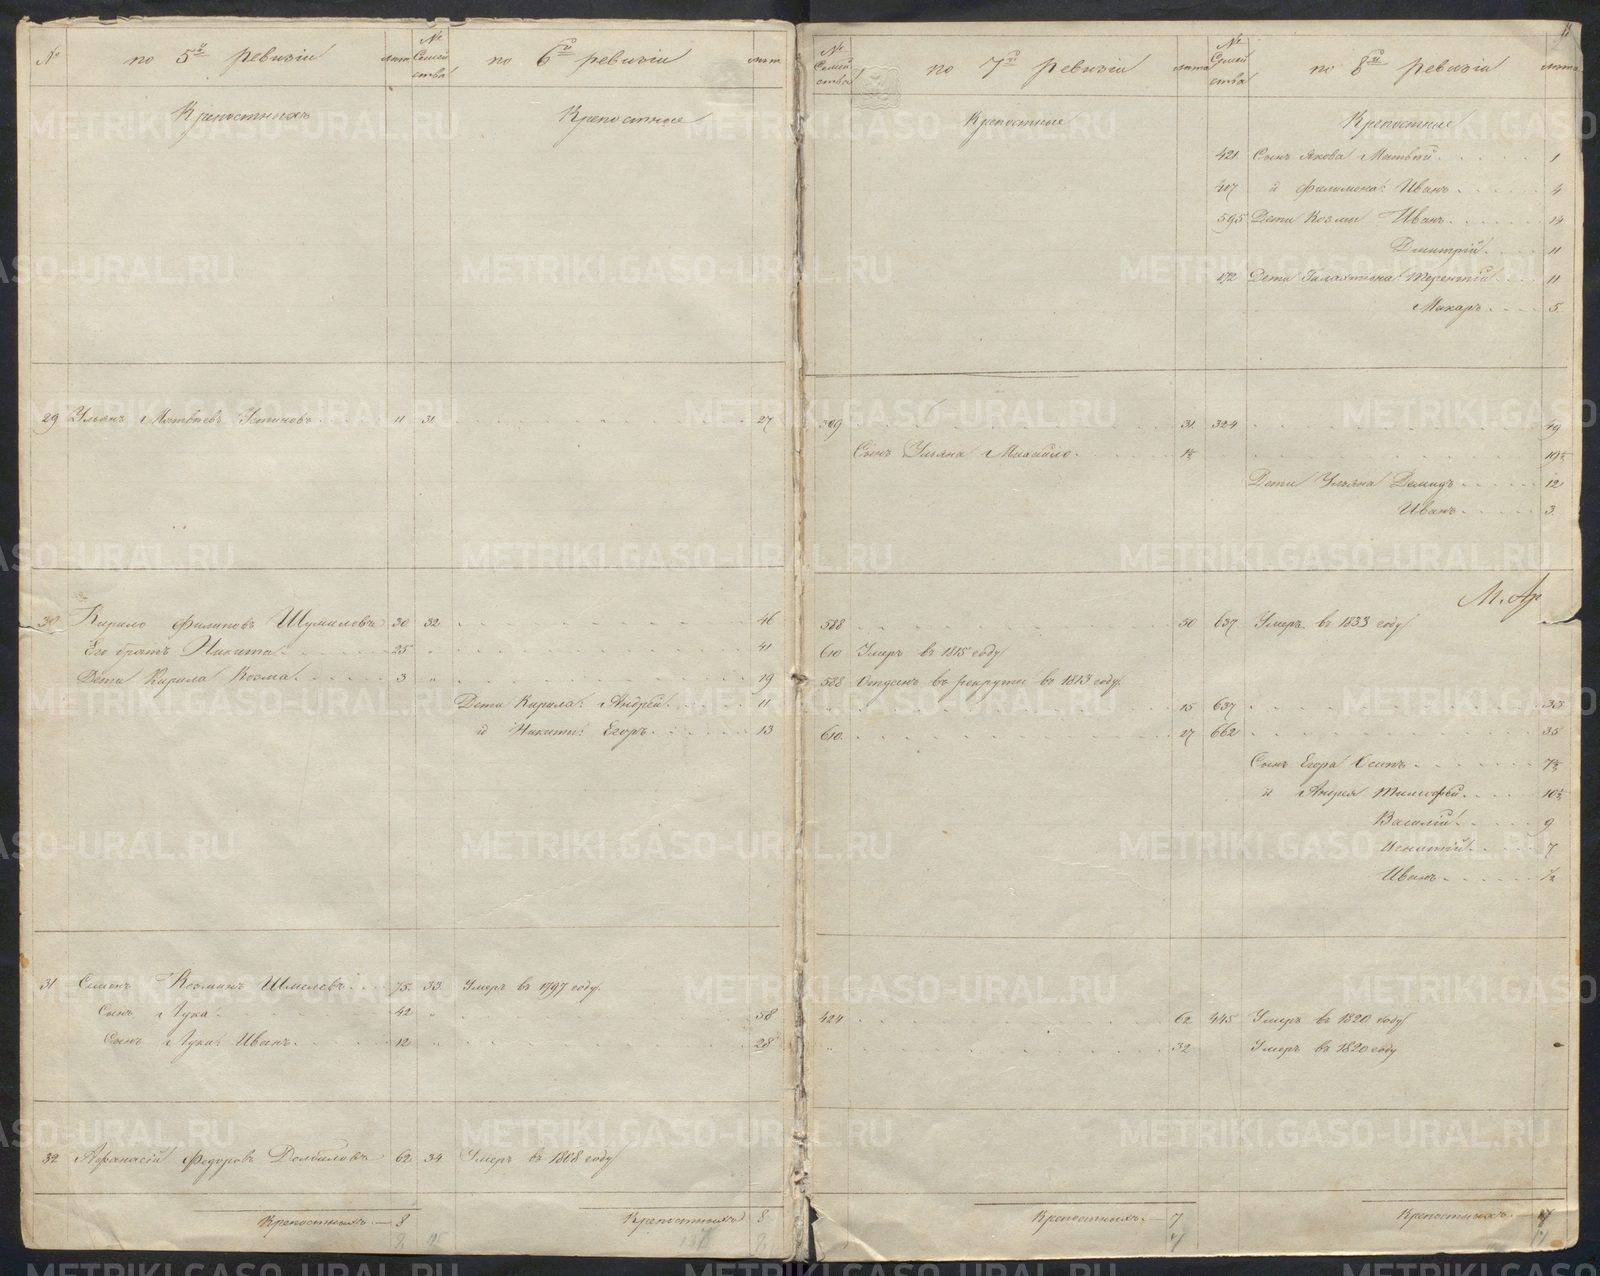 № по 5й ревизіи лѣта № Семейства по 6й ревизіи лѣта
Крѣпостныхъ Крѣпостные
29 Ульянъ Матвѣевъ Устиновъ 11 31 27
30 Кирило Филиповъ Шумиловъ 30 32 46
Его братъ Никита 25 „ 41
Дети Кирила Козма 3 „ 19
Дети Кирила: Андрей 11
и Никиты: Егоръ 13
31 Семенъ Козминъ Шмелевъ 75 33 Умеръ въ 1797 году
Сынъ Лука 42 „ 58
Сынъ Луки: Иванъ 12 „ 28
32 Афанасій Федоровъ 62 34 Умеръ въ 1808 году
Крѣпостныхъ — 8 Крѣпостныхъ 8
№ Семейства по 7й ревизіи лѣта № Семейства по 8й ревизіи лѣта
Крѣпостные Крѣпостные
421 Сынъ Якова Матвѣй 1
407 и Филимона: Иванъ 4
595 Дети Козмы Иванъ 14
Дмитрій 11
172 Дети Галактиона: Терентій 11
Макаръ 5
309 31 324 49
Сынъ Ульяна Михайло 1½ 19½
Дети Ульяна Демидъ 12
Иванъ 3
М. Ар
588 50 637 Умеръ въ 1833 году
610 Умеръ въ 1815 году
588 Отданъ въ рекруты въ 1813 году
15 637 33
610 17 662 35
Сынъ Егора Осипъ 7½
и Андрея Тимофей 10½
Василій 9
Игнатій 7
Иванъ ½
424 62 445 Умеръ въ 1820 году
„ 32 Умеръ въ 1820 году
Крѣпостныхъ — 7 Крѣпостныхъ — 17
METRIKI.GASO-URAL.RU